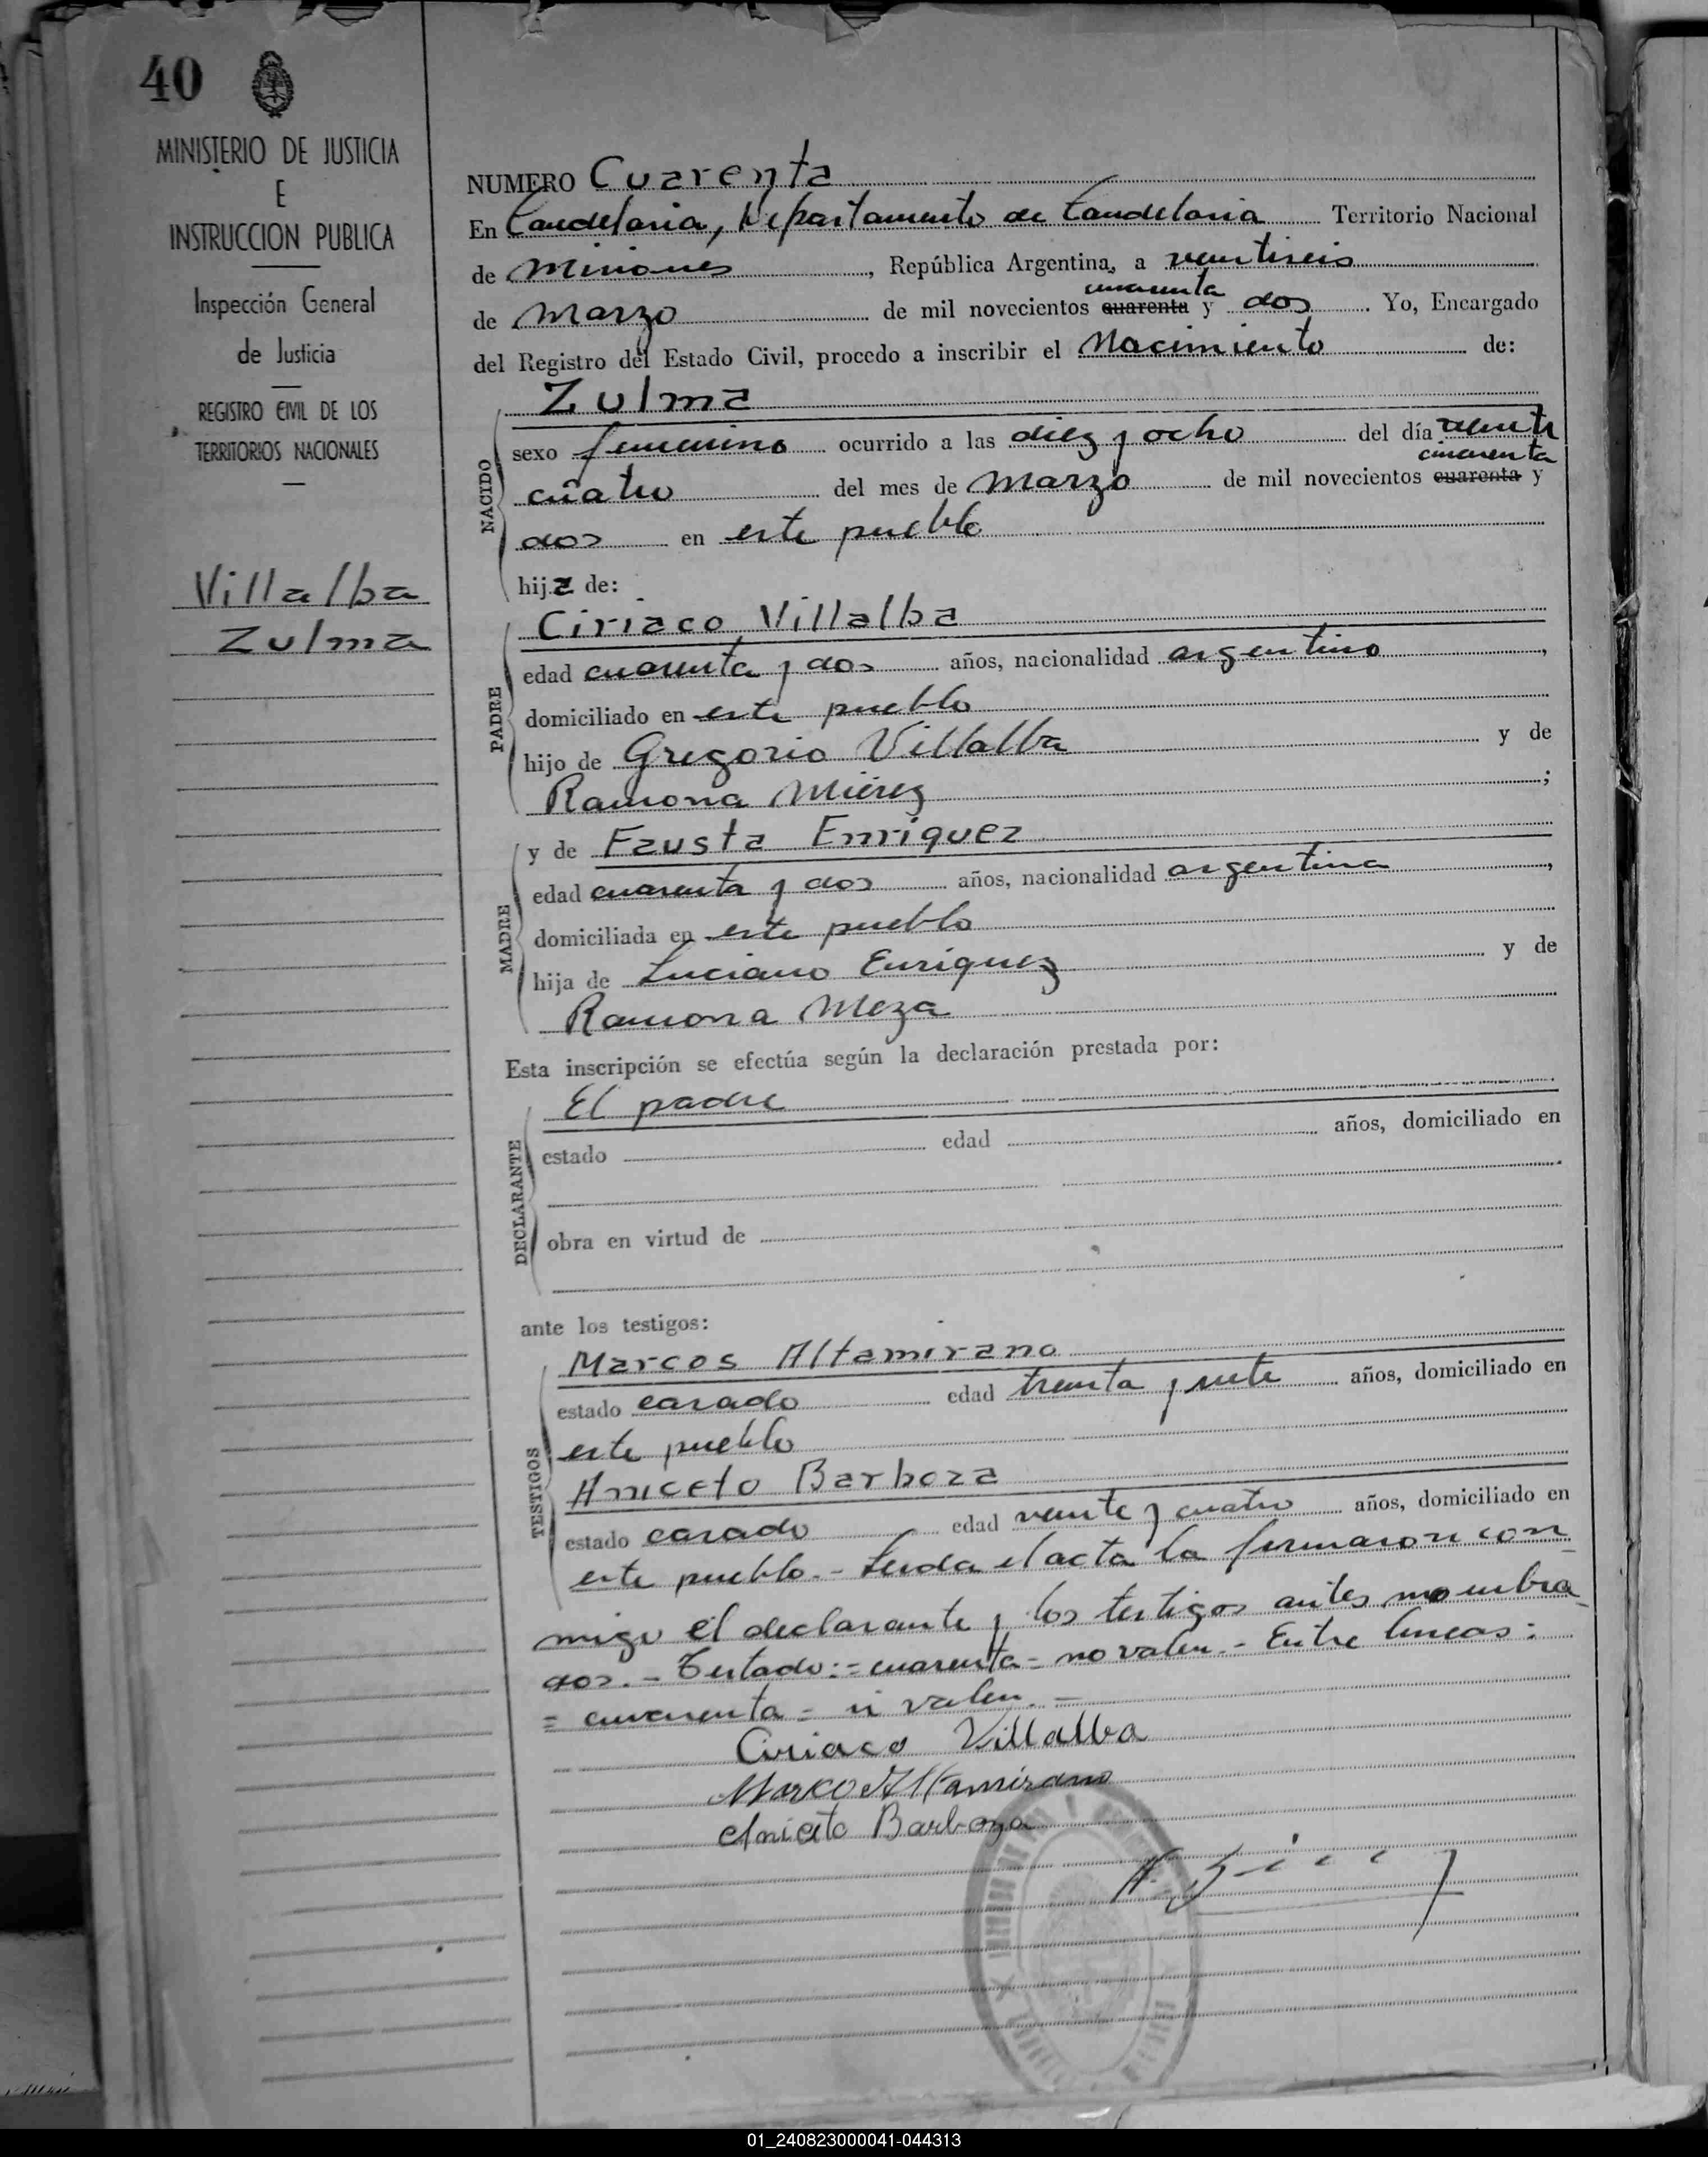 40
MINISTERIO DE JUSTICIA
E
INSTRUCCION PUBLICA
Inspección General
de Justicia
REGISTRO CIVIL DE LOS
TERRITORIOS NACIONALES
Villalba
Zulma
NUMERO Cuarenta
En Candelaria, Departamento de Candelaria Territorio Nacional
de Misiones, República Argentina, a veintiseis
cincuenta
de Marzo de mil novecientos cuarenta y dos. Yo, Encargado
del Registro del Estado Civil, procedo a inscribir el Nacimiento de:
Zulma
NACIDO
sexo femenino ocurrido a las diez y ocho del día veinti
cincuenta
cuatro del mes de Marzo de mil novecientos cuarenta y
dos en este pueblo
hija de:
PADRE
Ciriaco Villalba
edad cuarenta y dos años, nacionalidad argentino,
domiciliado en este pueblo
hijo de Gregorio Villalba y de
Ramona Mierez;
MADRE
y de Fausta Enriquez
edad cuarenta y dos años, nacionalidad argentina,
domiciliada en este pueblo
hija de Luciano Enriquez y de
Ramona Meza
Esta inscripción se efectúa según la declaración prestada por:
DECLARANTE
El padre
estado edad años, domiciliado en
obra en virtud de
ante los testigos:
TESTIGOS
Marcos Altamirano
estado casado edad treinta y siete años, domiciliado en
este pueblo
Aniceto Barboza
estado casado edad veinte y cuatro años, domiciliado en
este pueblo.- Leida el acta la firmaron con
migo el declarante y los testigos antes nombra
dos.- Testado:= cuarenta = no valen.- Entre lineas:
= cincuenta = si valen.-
Ciriaco Villalba
Marco Altamirano
Aniceto Barboza
01_240823000041-044313